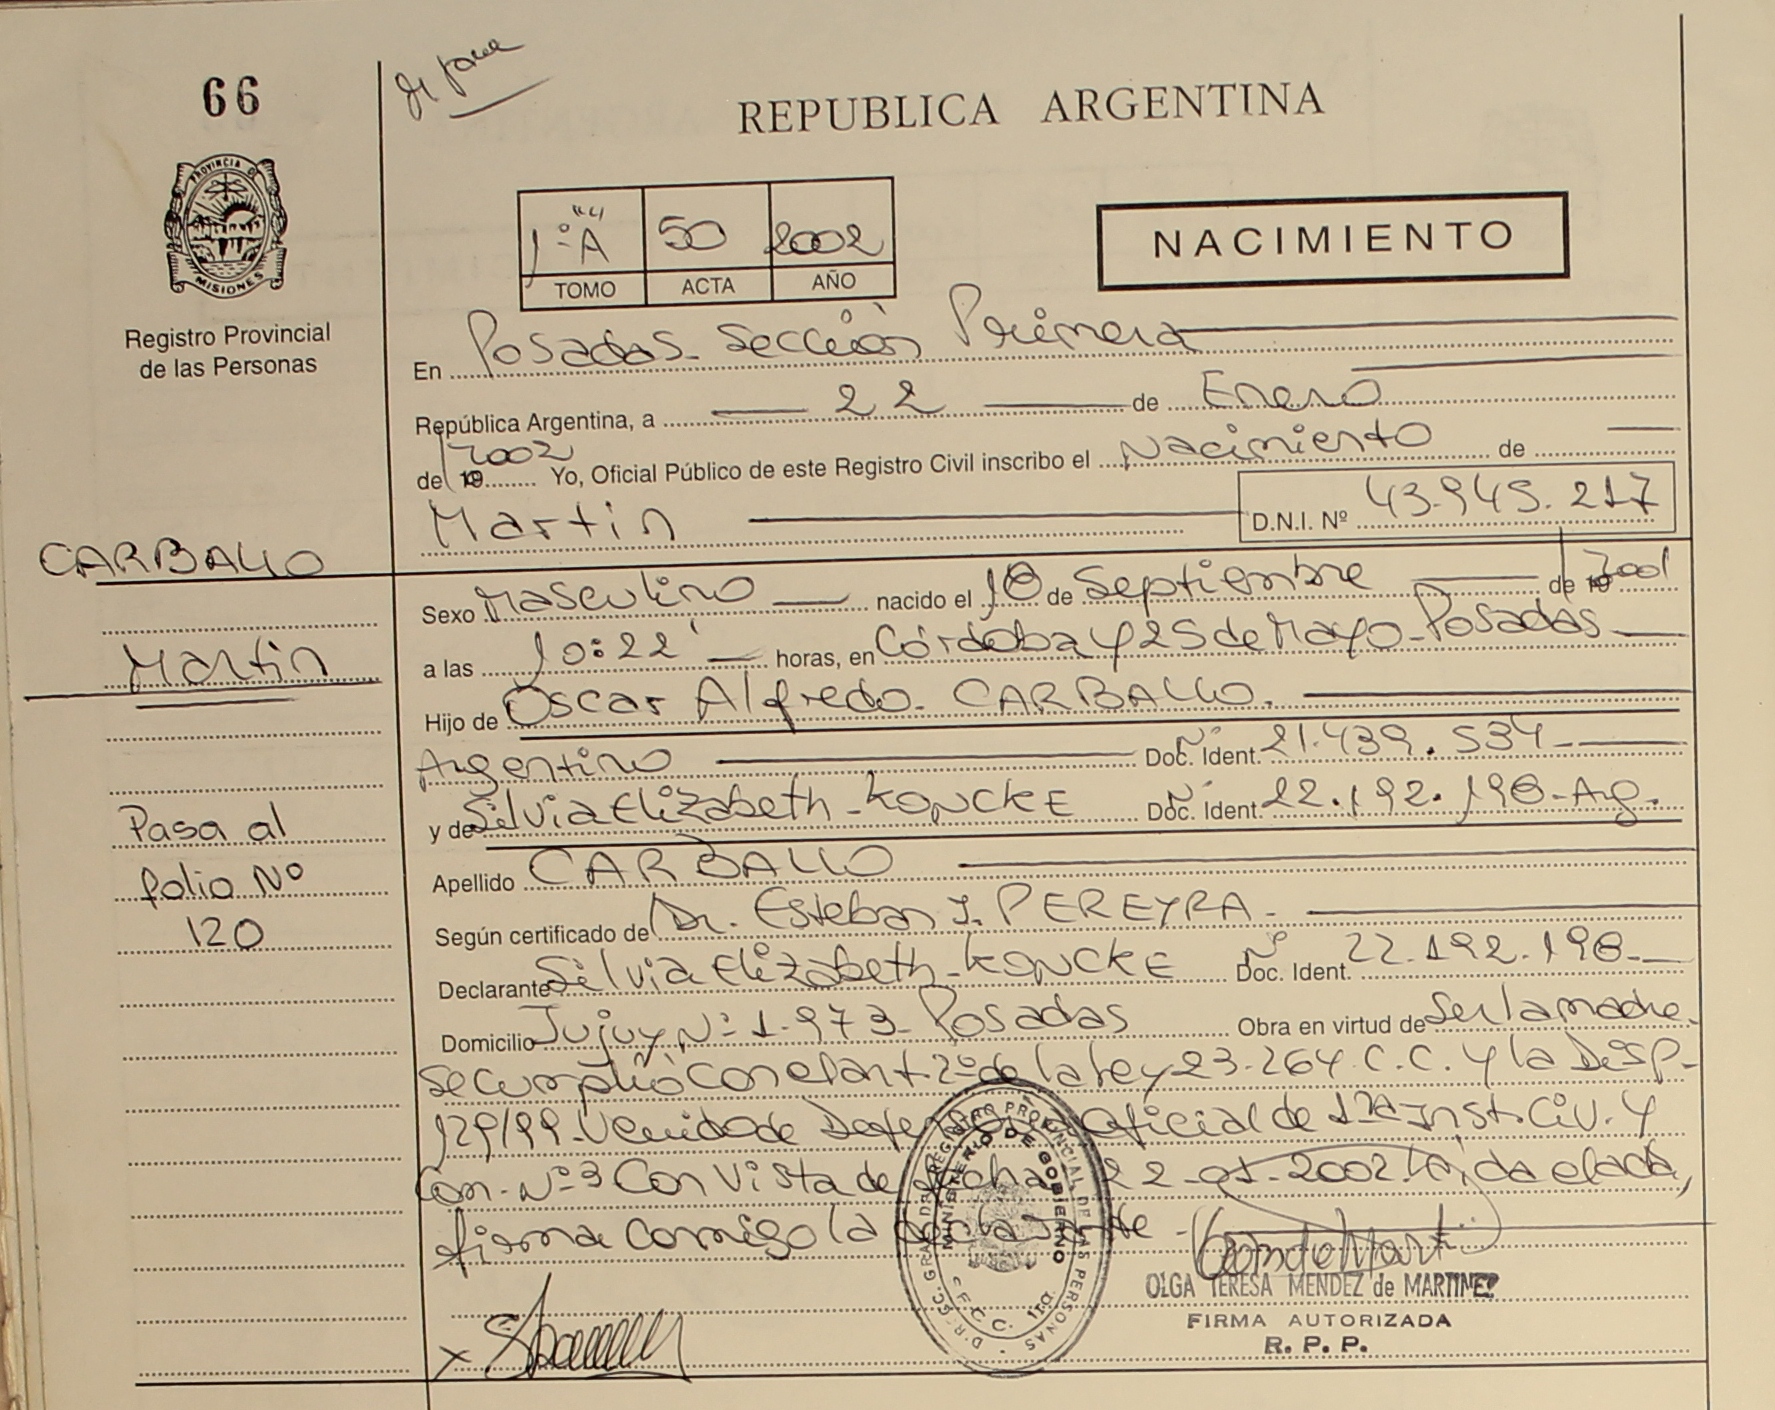 66
REPUBLICA ARGENTINA
PROVINCIA DE
MISIONES
Registro Provincial
de las Personas
1º "A" 50 2002
TOMO ACTA AÑO
NACIMIENTO
En Posadas Sección Primera
República Argentina, a 22 de Enero
de 19 2002 Yo, Oficial Público de este Registro Civil inscribo el Nacimiento de
Martin D.N.I. Nº 43.945.217
CARBALLO
Martin
Pasa al
folio Nº
120
Sexo Masculino nacido el 18 de Septiembre de 19 2001
a las 10:22' horas, en Córdoba y 25 de Mayo - Posadas
Hijo de Oscar Alfredo CARBALLO.
Argentino Doc. Ident. Nº 21.439.534
y de Silvia Elizabeth KONCKE Doc. Ident. Nº 22.192.198 - Arg.
Apellido CARBALLO
Según certificado de Dr. Esteban J. PEREYRA
Declarante Silvia Elizabeth KONCKE Doc. Ident. Nº 22.192.198
Domicilio Jujuy Nº 1.973 - Posadas Obra en virtud de Ser la madre.
Se cumplió con el art. 2º de la ley 23.264 C.C. y la Disp.
129/99. Venido de Defensoria Oficial de 1ra Inst. Civ. y
Com. Nº 3 Con Vista de fecha 22-01-2002. Leida el acta,
firma conmigo la declarante
REGISTRO PROVINCIAL DE LAS PERSONAS
MINISTERIO DE GOBIERNO
OLGA TERESA MENDEZ de MARTINEZ
FIRMA AUTORIZADA
R. P. P.
X